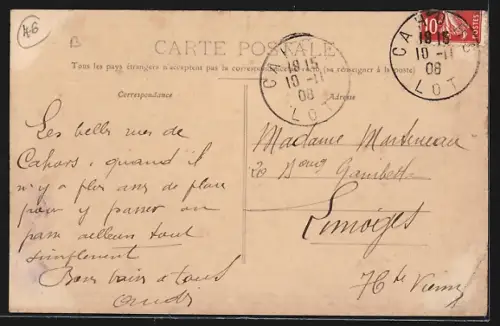 46
B
CARTE POSTALE
Tous les pays étrangers n'acceptent pas la correspondance (se renseigner à la poste)
Correspondance
Adresse
CAHORS
18 15
10 -11
08
LOT
CAHORS
18 15
10 -11
08
LOT
10
POSTES
Les belles rues de
Cahors, quand il
n'y a plus de place
pour y passer on
passe ailleurs tout
simplement
Bons baisers à tous
André
Madame Martineau
20 Bourg Gambetta
Limoiges
Hte Vienne